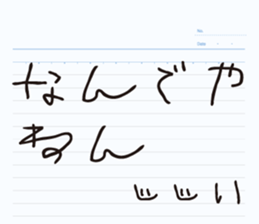 No.
Date ・ ・
なんでや
ねん
じじい